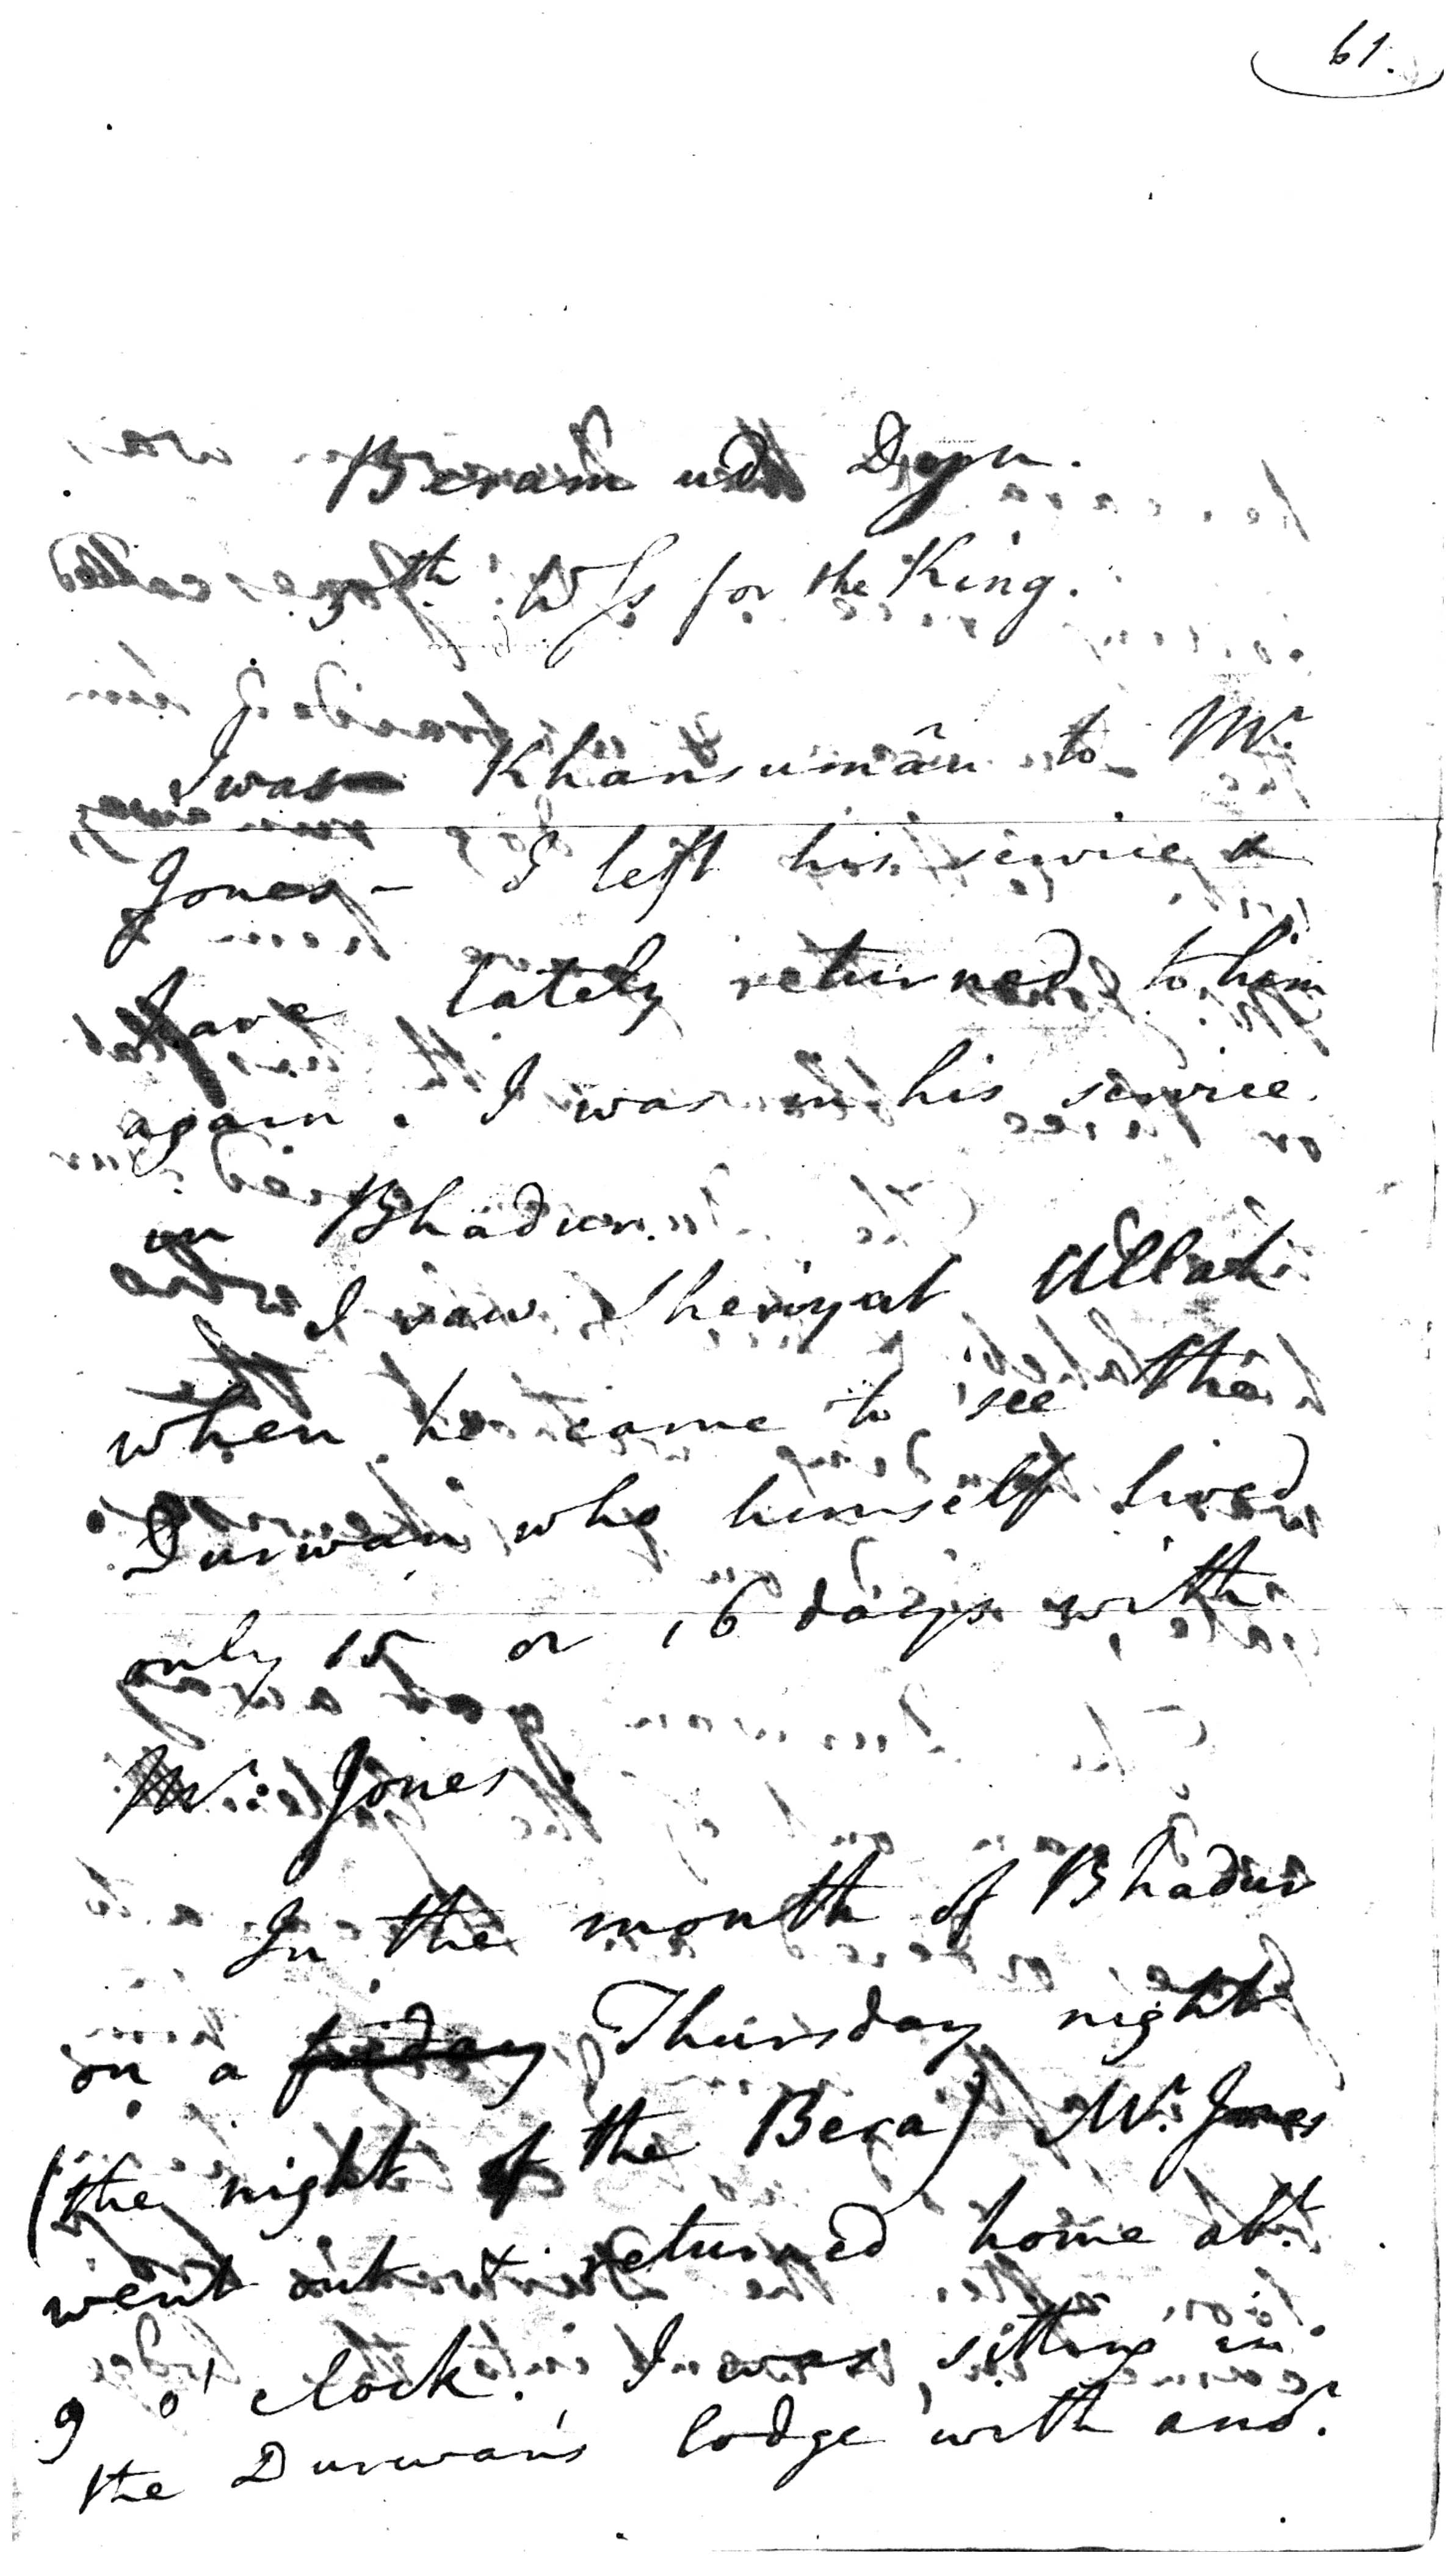 61.
Beram ud Deen.
5th Ws for the King.
I was Khansumân to Mr.
Jones - I left his service &
have lately returned to him
again. I was in his service
in Bhadur.
I saw Sheriyat Ullah
when he came to see the
Durwan who himself lived
only 15 or 16 days with
Mr. Jones
In the month of Bhadur
on a friday Thursday night
(the night of the Bera) Mr. Jones
went out & returned home abt.
9 o'clock. I was sitting in
the Durwan's lodge with anor.